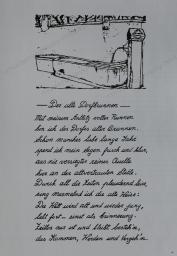 Der alte Dorfbrunnen
Mit meinem Antlitz voller Runen
bin ich des Dorfes alter Brunnen.
Schon manches liebe lange Jahr
spend ich mein Wasser frisch und klar,
aus nie versiegter reiner Quelle
hier an der altvertrauten Stelle.
Durch all die Zeiten plaudernd dein,
sing murmelnd ich die alte Weise:
Die Welt wird alt und wieder jung,
lebt fort – einst als Erinnerung.
Zeiten aus ist und bleibt besteh'n,
das Kommen, Werden und Vergeh'n.